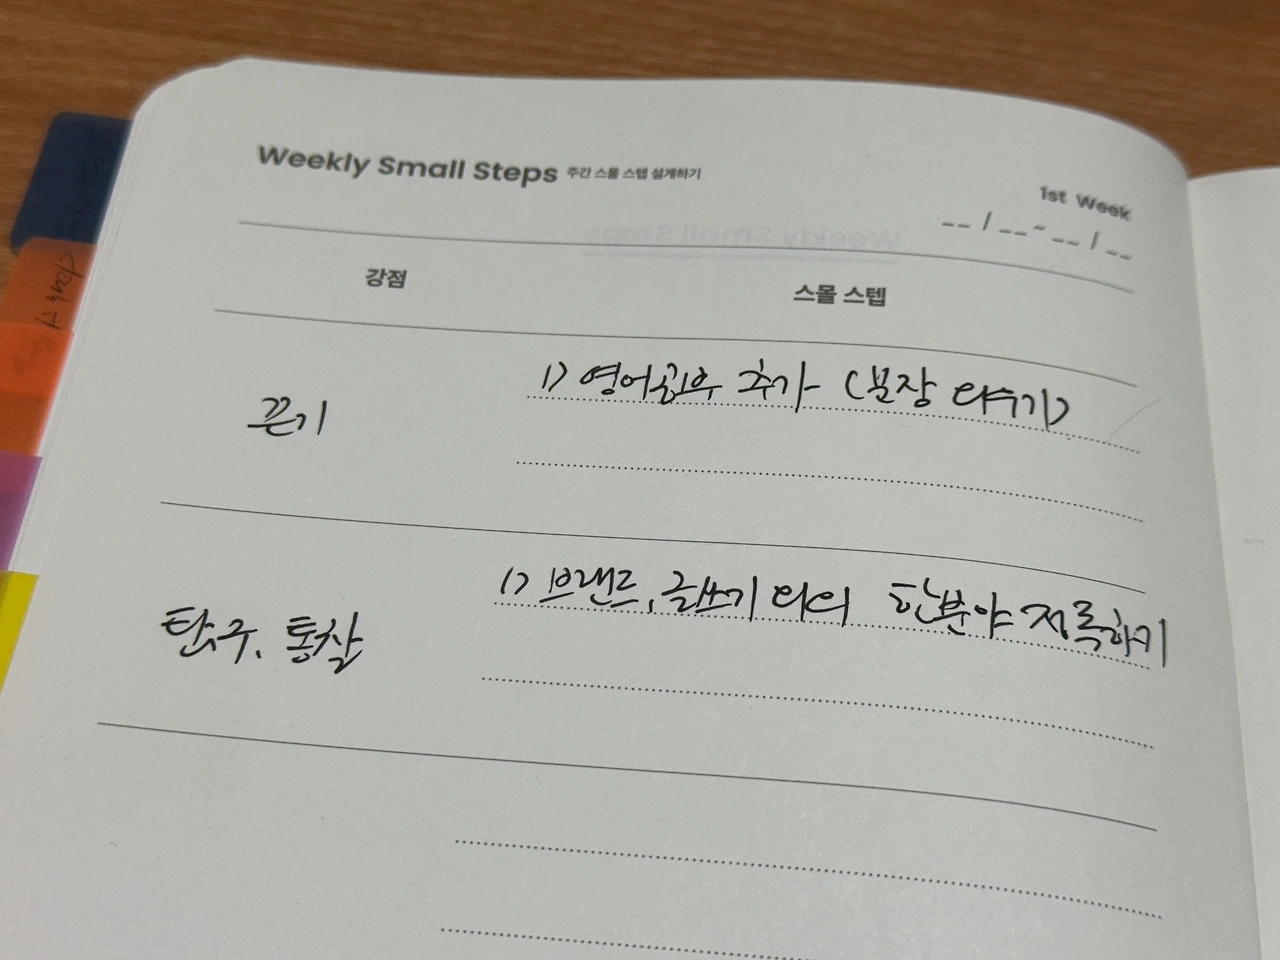 Weekly Small Steps 주간 스몰 스텝 설계하기
1st Week
__/__~__/__
강점
스몰 스텝
끈기
1) 영어공부 추가 (문장
탐구, 통찰
1) 브랜드, 글쓰기 외의 한분야 정록하기